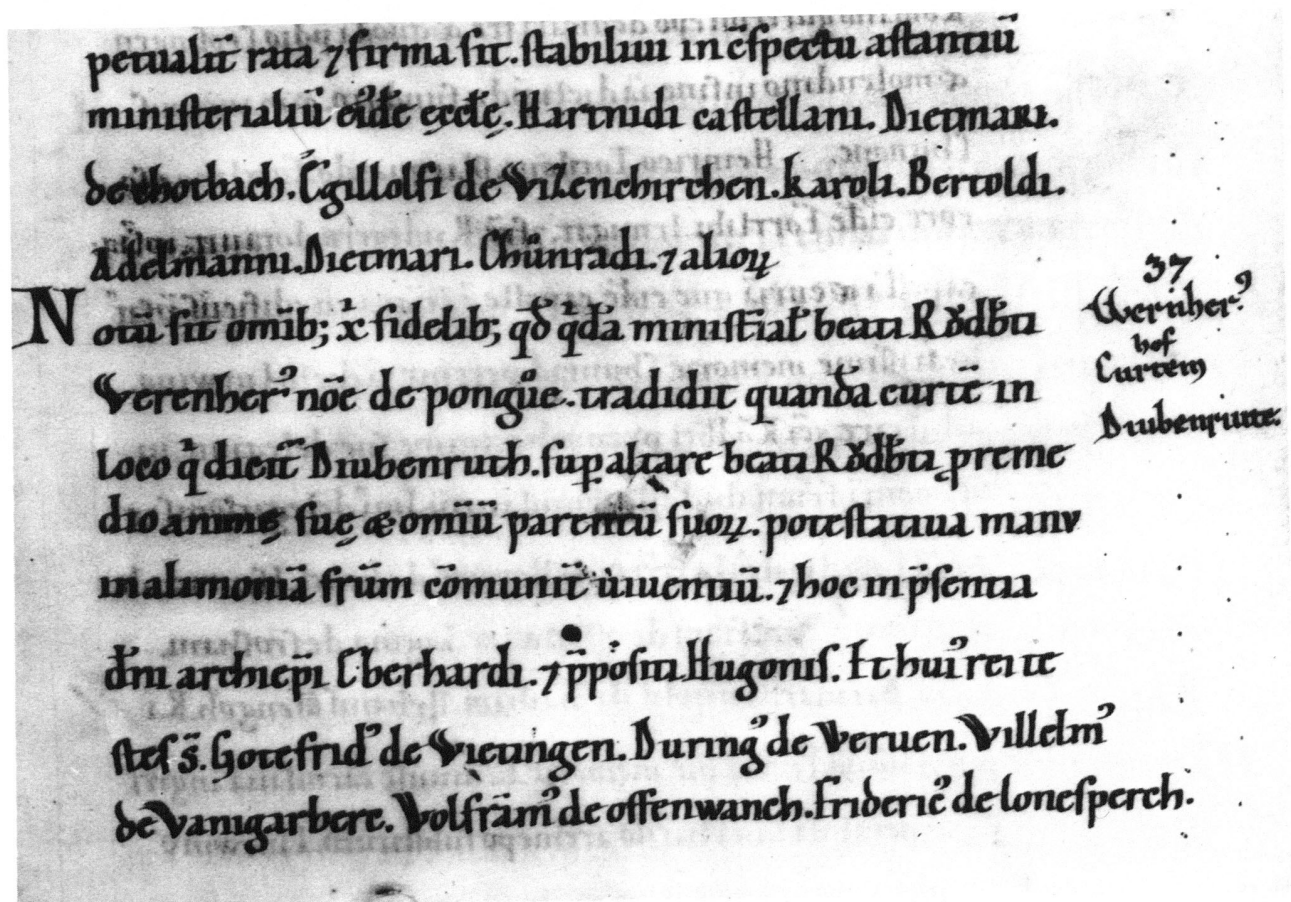 petualit̄ rata ⁊ firma sit. stabiliui in c̄spectu astantiū
ministerialiū eiꝰdē ęccłę. Hartnidi castellani. Dietmari.
de chotbach. Ęgillolfi de Vizenchirchen. karoli. Bertoldi.
Adelmanni. Dietmari. Chůnradi. ⁊ alioꝝ
Notū sit omīb; xp̄i fidelib; qđ qͥdā minist̄ial̄ beati Rǒdb̄ti
Verenherꝰ nōe de pongůe. tradidit quandā curtē in
loco qͥ dicit̄ Diubenruth. suꝑ altare beati Rǒdb̄ti ꝓ reme
dio animę suę æ omiū parentū suoꝝ. potestatiua manv
in alimoniā fr̄um cōmunit̄ uiuentiū. ⁊ hoc in p̄sentia
dn̄i archiep̄i Eberhardi. ⁊ p̄positi Hugonis. Et huiꝰ rei te
stes s̄. Gotefridꝰ de Vietingen. Duringꝰ de Veruen. Villelmꝰ
de Vanigarbere. Volfrāmꝰ de offenwanch. Fridericꝰ de lonesperch.
37
Wernherꝰ
hof
Curtem
Diubenriute.